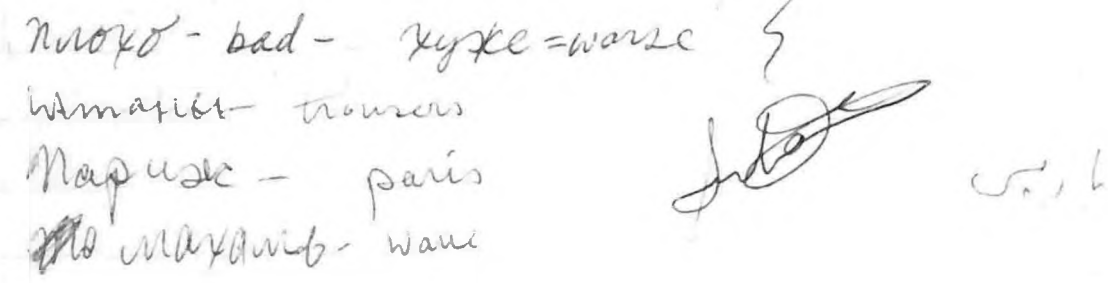 плохо - bad - хуже = worse
штаны - trousers
Париж - paris
махать - wave